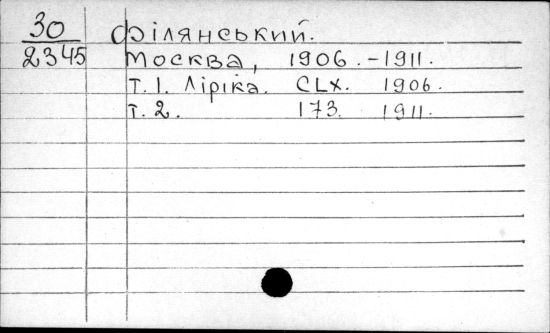 30 Філянський.
2345 Москва, 1906.-1911.
Т. 1. Ліріка. CLX. 1906.
Т. 2. 173. 1911.